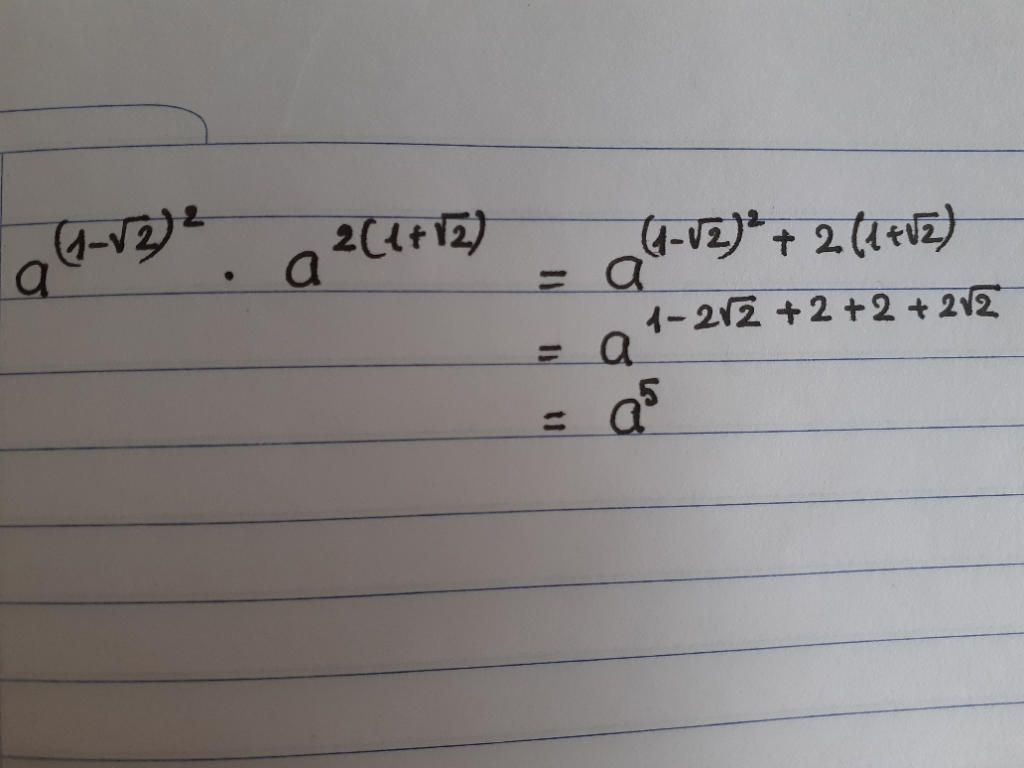 a^(1-√2)² · a^2(1+√2) = a^(1-√2)² + 2(1+√2)
= a^1-2√2+2+2+2√2
= a^5